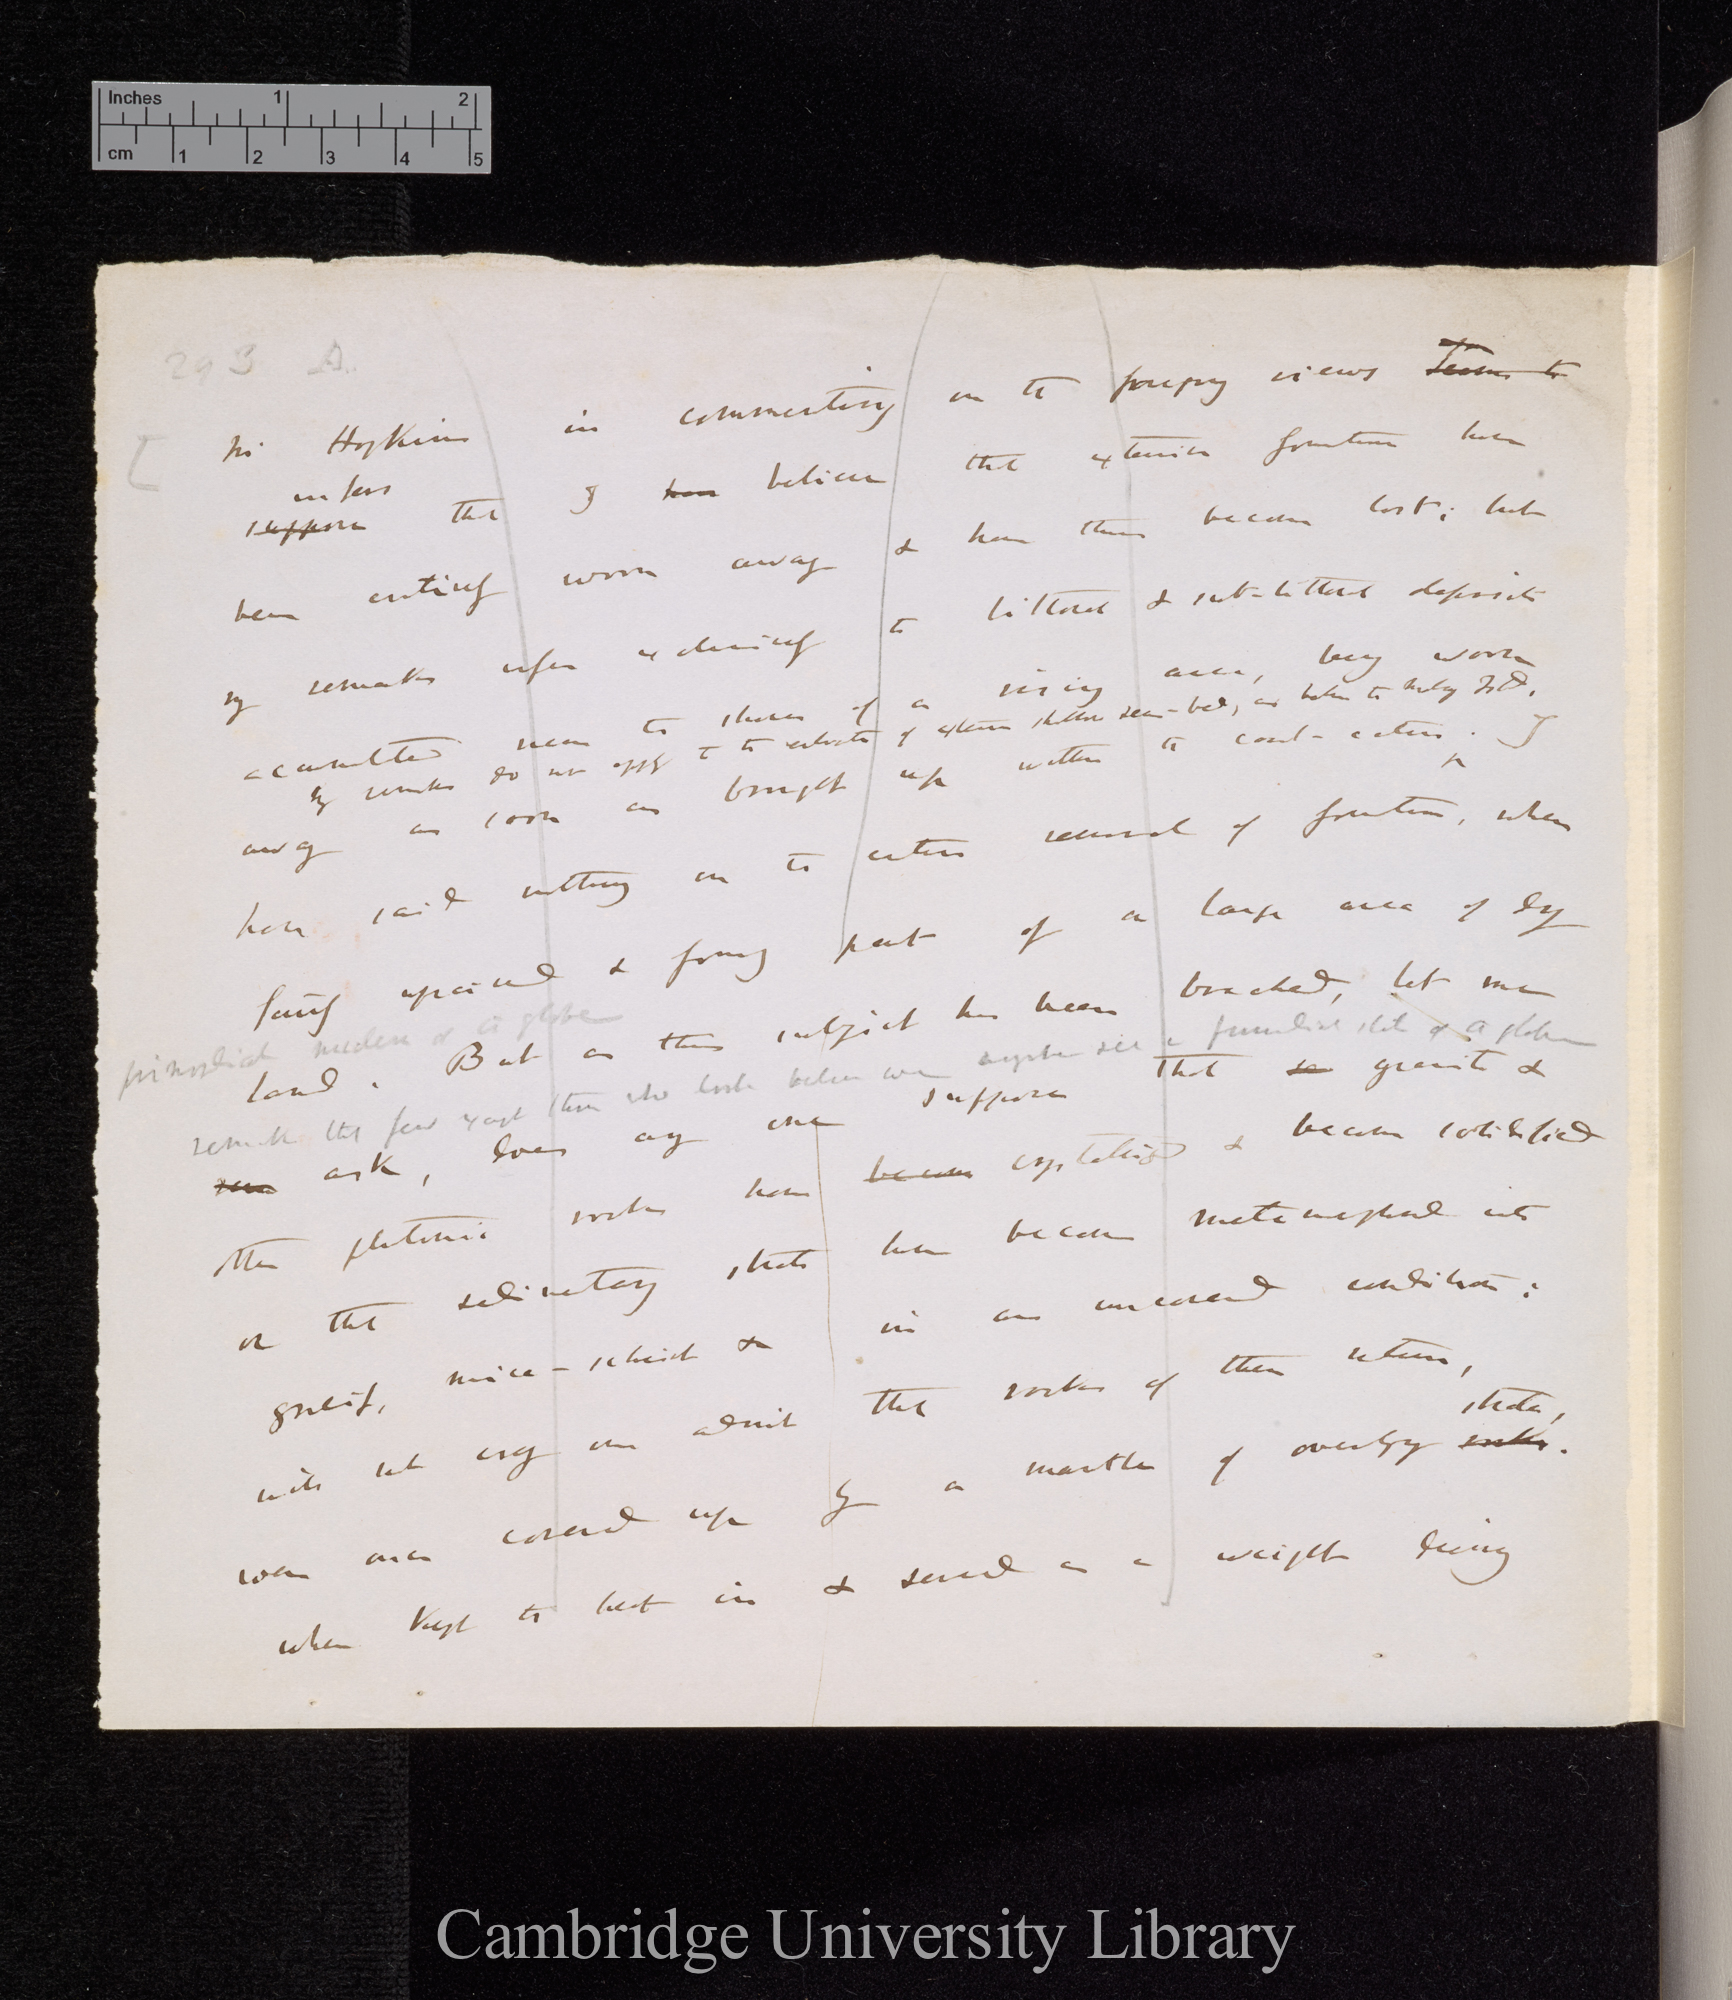 Inches 1 2
cm 1 2 3 4 5
293 A.
[ Mr Hopkins in commenting on the foregoing views seems to
infers
suppose that I have believe that extensive formations have
been entirely worn away & have thus become lost; but
my remarks refer exclusively to littoral & sub-littoral deposits
accumulated near the shores of a rising area, being worn
My remarks do not apply to the of extensive shallow sea-bed,
away as soon as brought up within the coast-action. I
have said nothing on the entire removal of formations, when
fairly upraised & forming part of a large area of dry
primordial nucleus of the globe
land. But as this subject has been broached, let me
remark that few except those who look believe we anywhere see a primordial state of the globe
ask, does any one suppose that granite &
other plutonic rocks have become crystallised & become solidified
or that sedimentary strata have become metamorphosed into
gneiss, mica-schist & in an uncovered condition:
will not every one admit that rocks of these nature,
strata,
were once covered up by a mantle of overlying rocks.
when kept the heat in & served as a weight during
Cambridge University Library